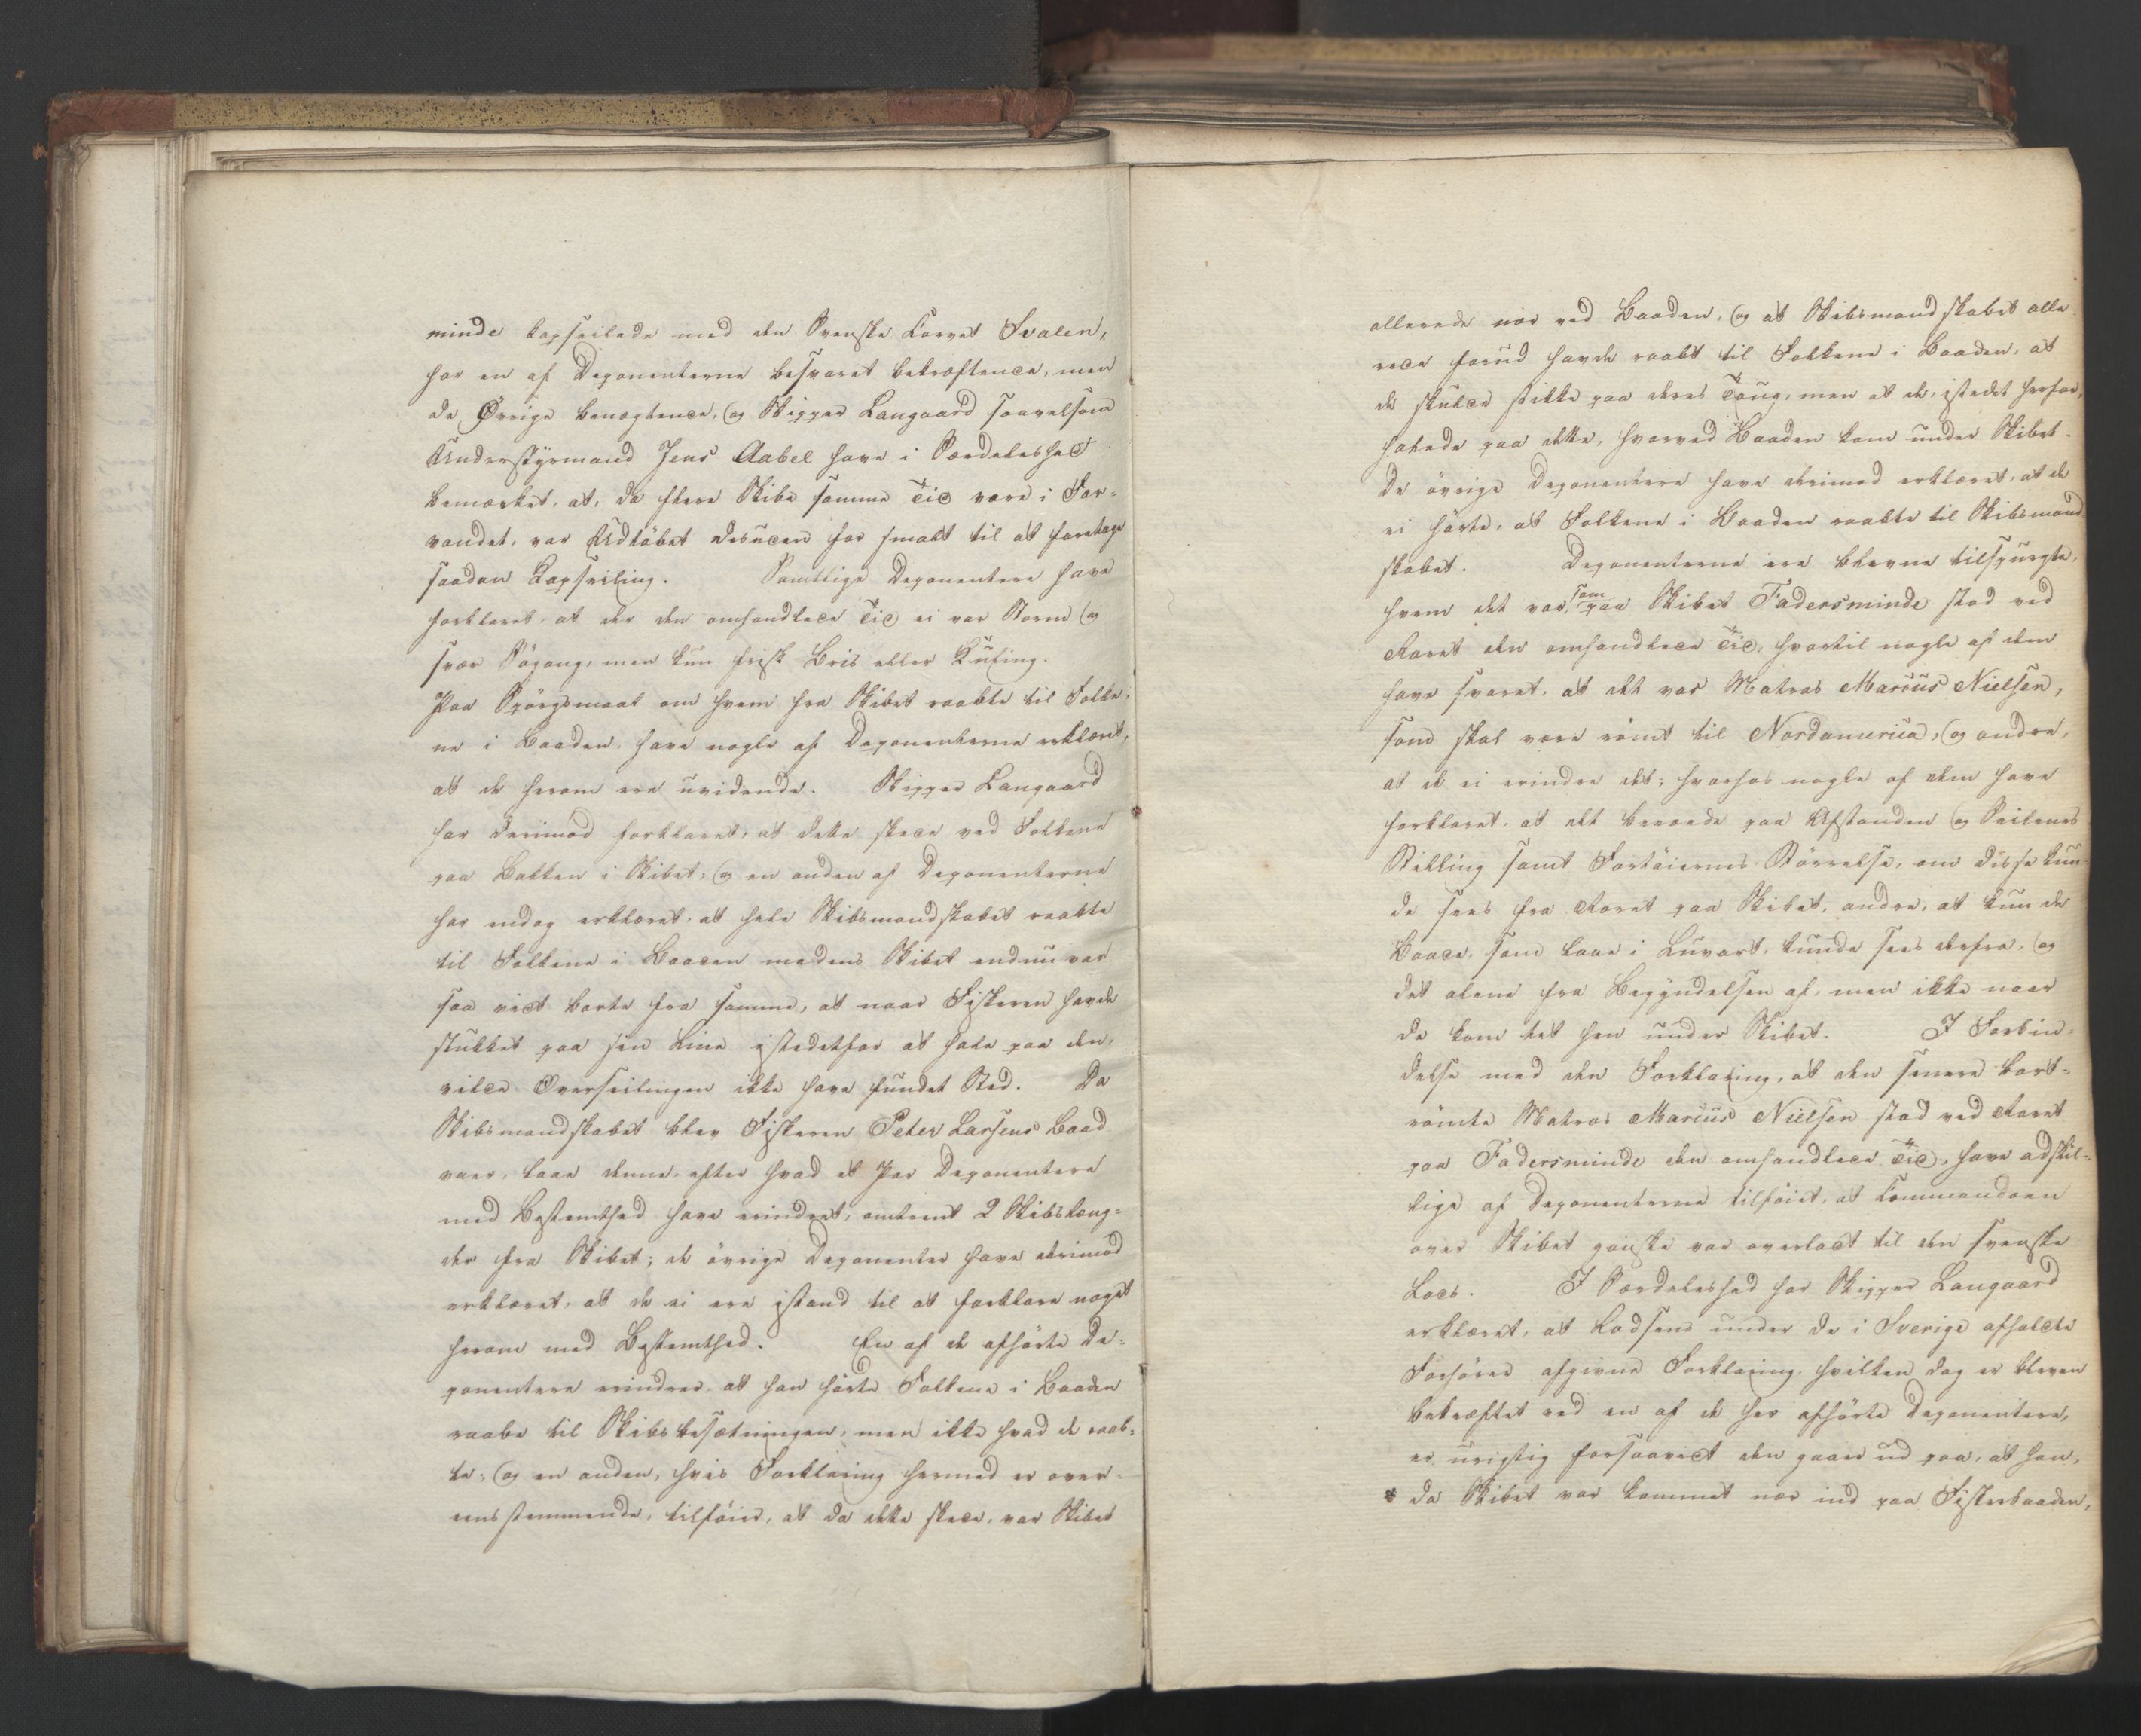 minde kapseilede med den Svenske Corvet Svalen,
har en af Deponenterne besvaret bekræftende, men
de Øvrige benægtende, og Skipper Langaard saavelsom
Understyrmand Jens Aabel have i Særdeleshed
bemærket, at, da flere Skibe samme Tid vare i Far-
vandet, var Udløbet desuden for smalt til at foretage
saadan Kapseiling. Samtlige Deponentere have
forklaret, at der den omhandlede Tid ei var Storm og
svær Søgang, men kun frisk Bris eller Kuling.
Paa Spörgsmaal om hvem fra Skibet raabte til Folke-
ne i Baaden, have nogle af Deponenterne erklæret,
at de herom ere uvidende. Skipper Langaard
har derimod forklaret, at dette skede ved Folkene
paa Bakken i Skibet, og en anden af Deponenterne
har endog erklæret, at hele Skibsmandskabet raabte
til Folkene i Baaden medens Skibet endnu var
saa vidt borte fra samme, at naar Fiskeren havde
stukket paa sin Line istedetfor at hale paa den,
vilde Overseilingen ikke have fundet Sted. Da
Skibsmandskabet blev Fiskeren Peter Larsens Baad
vaer, laae denne, efter hvad et Par Deponentere
med Bestemthed have erindret, omtrent 2 Skibslæng-
der fra Skibet; de övrige Deponenter have derimod
erklæret, at de ei ere istand til at forklare noget
herom med Bestemthed. En af de afhörte De-
ponentere erindrer at han hörte Folkene i Baaden
raabe til Skibsbesætningen, men ikke hvad de raab-
te; og en anden, hvis Forklaring hermed er over-
eensstemmende, tilföier, at da dette skede, var Skibet
allerede nær ved Baaden, og at Skibsmandskabet alle-
rede forud havde raabt til Folkene i Baaden, at
de skulde stikke paa deres Toug, men at de, istedet herfor,
halede paa dette, hvorved Baaden kom under Skibet.
De övrige Deponentere have derimod erklæret, at de
ei hörte, at Folkene i Baaden raabte til Skibsmand-
skabet. Deponenterne ere blevne tilspurgte,
hvem det var, som paa Skibet Fadersminde stod ved
Roret den omhandlede Tid, hvortil nogle af dem
have svaret, at det var Matros Marius Nielsen,
som skal være römt til Nordamerica, og andre,
at de ei erindre det; hvorhos nogle af dem have
forklaret, at det beroede paa Afstanden og Seilenes
Stilling samt Fartöiernes Störrelse, om disse kun-
de sees fra Roret paa Skibet, andre, at kun de
Baade, som laae i Luvart, kunde sees derfra, og
det alene fra Begyndelsen af, men ikke naar
de kom tæt hen under Skibet. I Forbin-
delse med den Forklaring, at den senere bort-
römte Matros Marius Nielsen stod ved Roret
paa Fadersminde den omhandlede Tid, have adskil-
lige af Deponenterne tilföiet, at Commandoen
over Skibet ganske var overladt til den svenske
Lods. I Særdeleshed har Skipper Langaard
erklæret, at Lodsens under de i Sverige afholdte
Forhörer afgivne Forklaring, hvilken dog er bleven
bekræftet ved en af de her afhörte Deponentere,
er urigtig forsaavidt den gaaer ud paa, at han,
* da Skibet var kommet nær ind paa Fiskerbaaden,